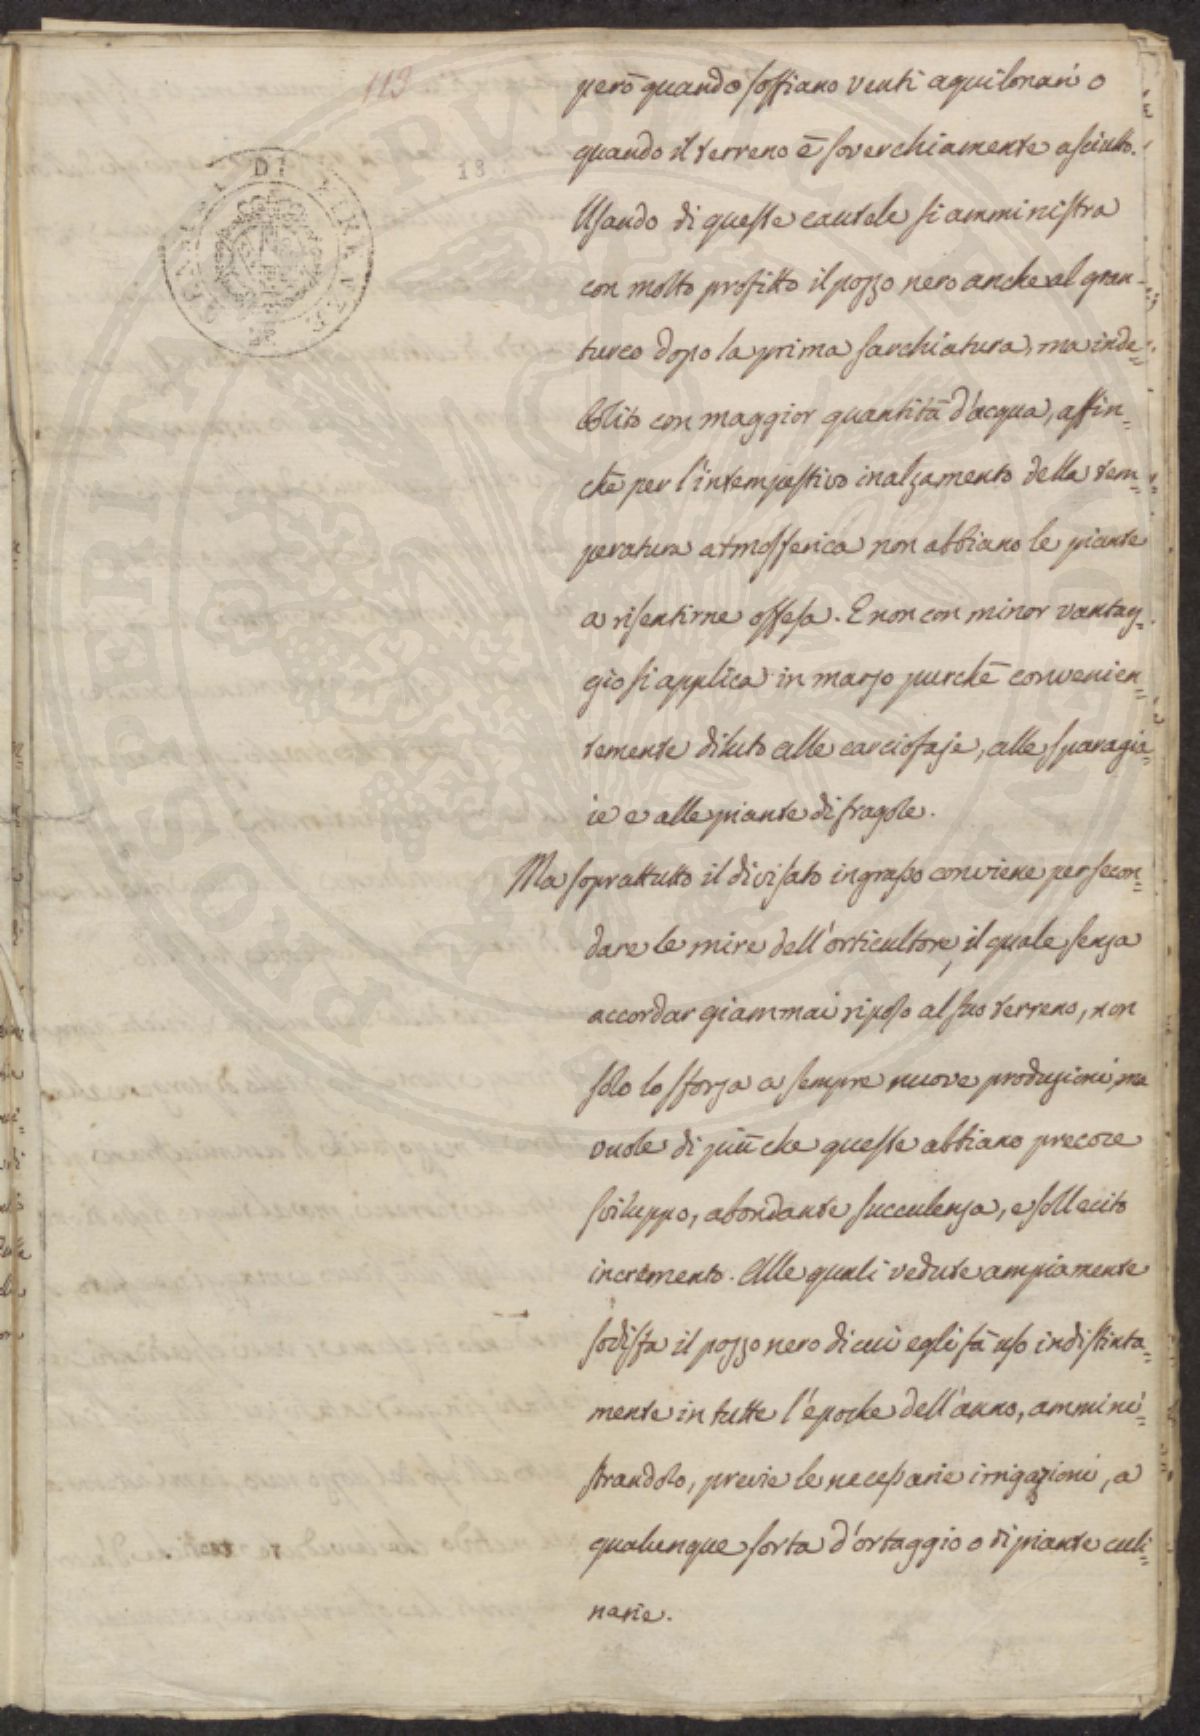 113
18
però quando soffiano venti aquilonari o
quando il terreno è soverchiamente asciutto.
Usando di queste cautele si amministra
con molto profitto il pozzo nero anche al gran-
turco dopo la prima sarchiatura, ma inde=
bolito con maggior quantità d'acqua, affin=
chè per l'intempestivo inalzamento della tem=
peratura atmosferica non abbiano le piante
a risentirne offesa. E non con minor vantag=
gio si applica in marzo purchè convenien=
temente diluto alle carciofaje, alle sparagia=
ie e alle piante di fragole.
Ma soprattutto il divisato ingrasso conviene per secon=
dare le mire dell'orticultore, il quale senza
accordar giammai riposo al suo terreno, non
solo lo sforza a sempre nuove produzioni, ma
vuole di più che queste abbiano precoce
sviluppo, abondante succulenza, e sollecito
incremento. Alle quali vedute ampiamente
sodisfa il pozzo nero di cui egli fà uso indistinta=
mente in tutte l'epoche dell'anno, ammini=
strandolo, previe le necessarie irrigazioni, a
qualunque sorta d'ortaggio o di piante culi=
narie.